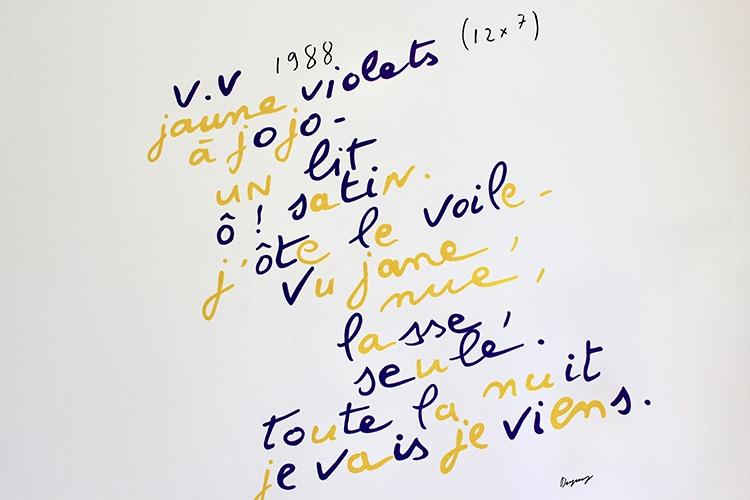 v.v 1988 (12x7)
jaune violets
à jojo-
un lit
ô! satin.
j'ôte le voile-
vu jane,
nue,
lasse,
seule.
toute la nuit
je vais je viens.